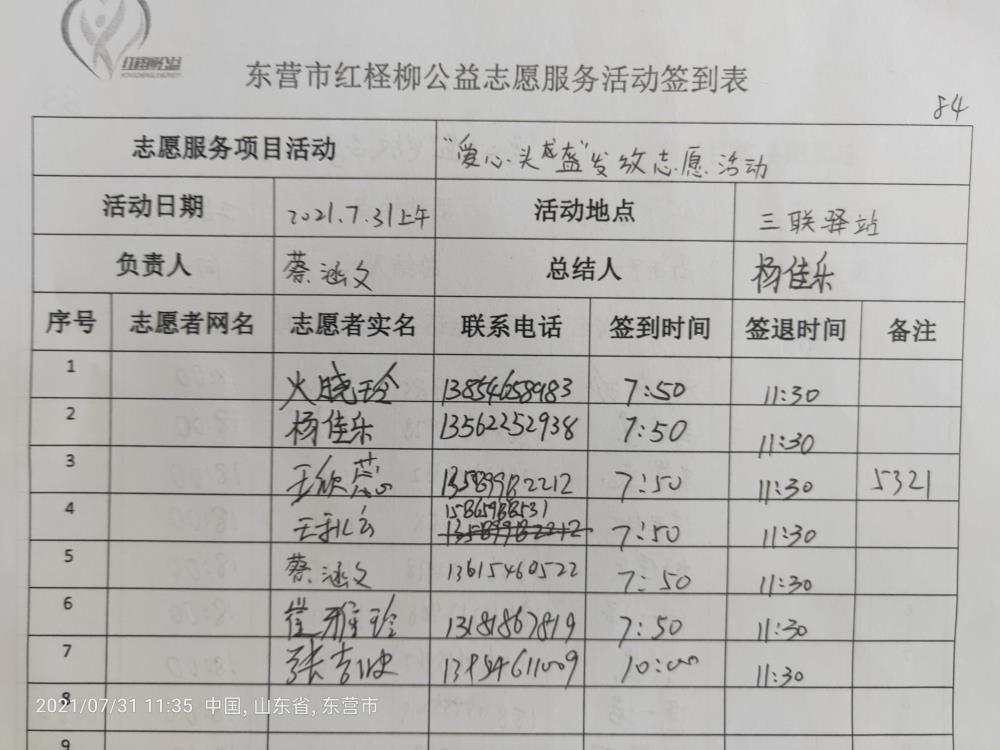 红柽柳公益
东营市红柽柳公益志愿服务活动签到表
84
志愿服务项目活动 "爱心头盔"发放志愿活动
活动日期 2021.7.31上午 活动地点 三联驿站
负责人 蔡涵文 总结人 杨佳乐
序号 志愿者网名 志愿者实名 联系电话 签到时间 签退时间 备注
1 火晓玲 13854658983 7:50 11:30
2 杨佳乐 13562252938 7:50 11:30
3 王欣蕊 13589982212 7:50 11:30 5321
15865988531
4 7:50 11:30
5 蔡涵文 13615460522 7:50 11:30
6 崔雅玲 7:50 11:30
7 10:00 11:30
8
2021/07/31 11:35 中国, 山东省, 东营市
9